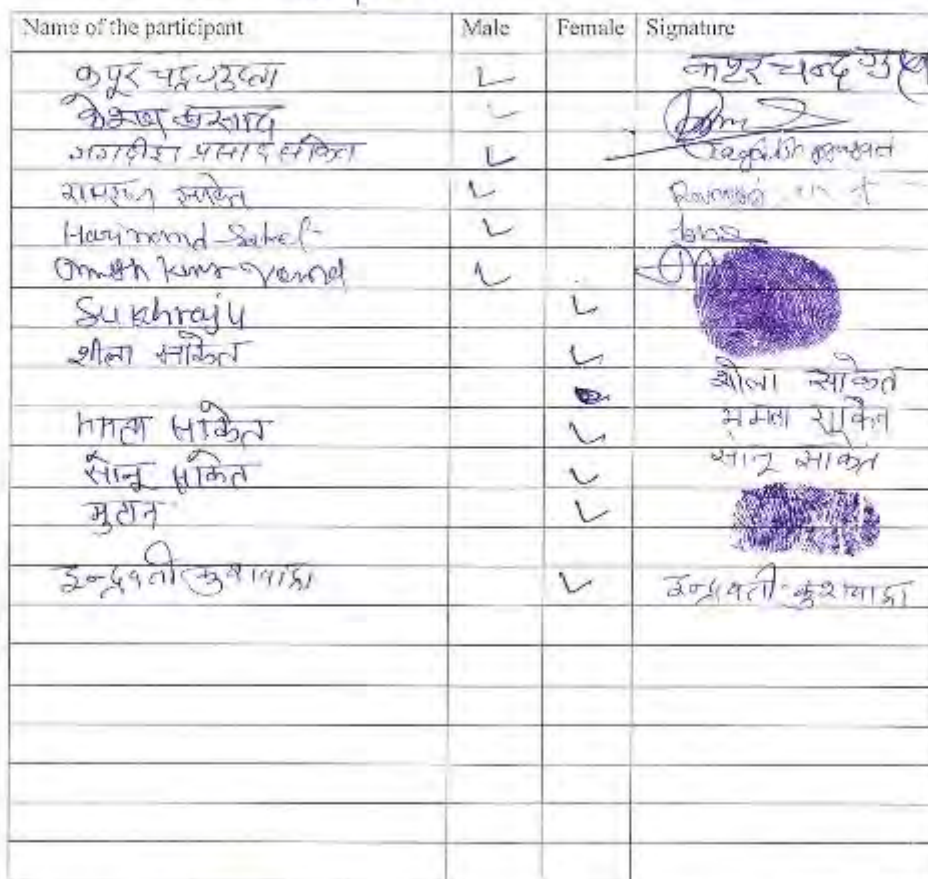 Name of the participant Male Female Signature
कपूर चन्द्र गुप्ता कपूर चन्द गुप्ता
प्रसाद
जगदीश प्रसाद साकेत Jagdish
रामराज साकेत
Harinand Saket
Sukhraju
शीला साकेत शीला साकेत
ममता साकेत ममता साकेत
सोनू साकेत सोनू साकेत
मुटान
इन्द्रवती कुशवाहा इन्द्रवती कुशवाहा